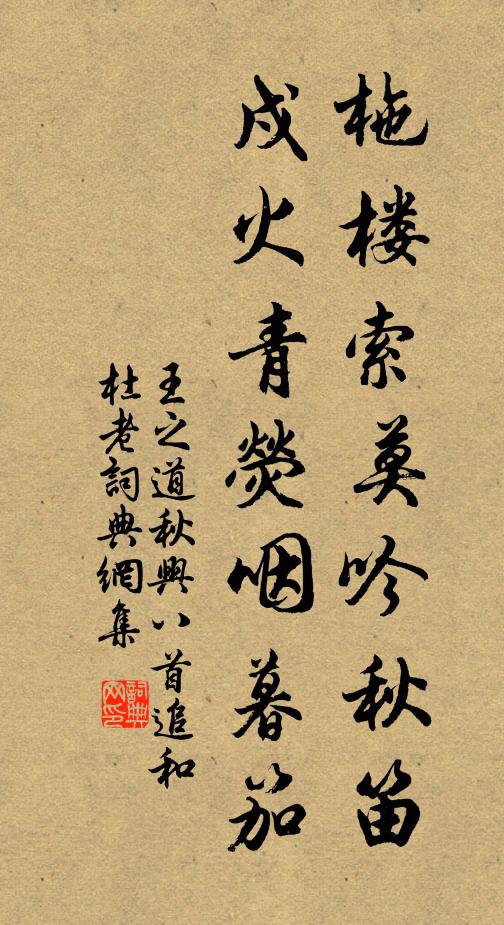 柂楼索莫吟秋笛
戍火青荧咽暮笳
王之道秋興八首追和
杜老詞典網集
詞典
网印